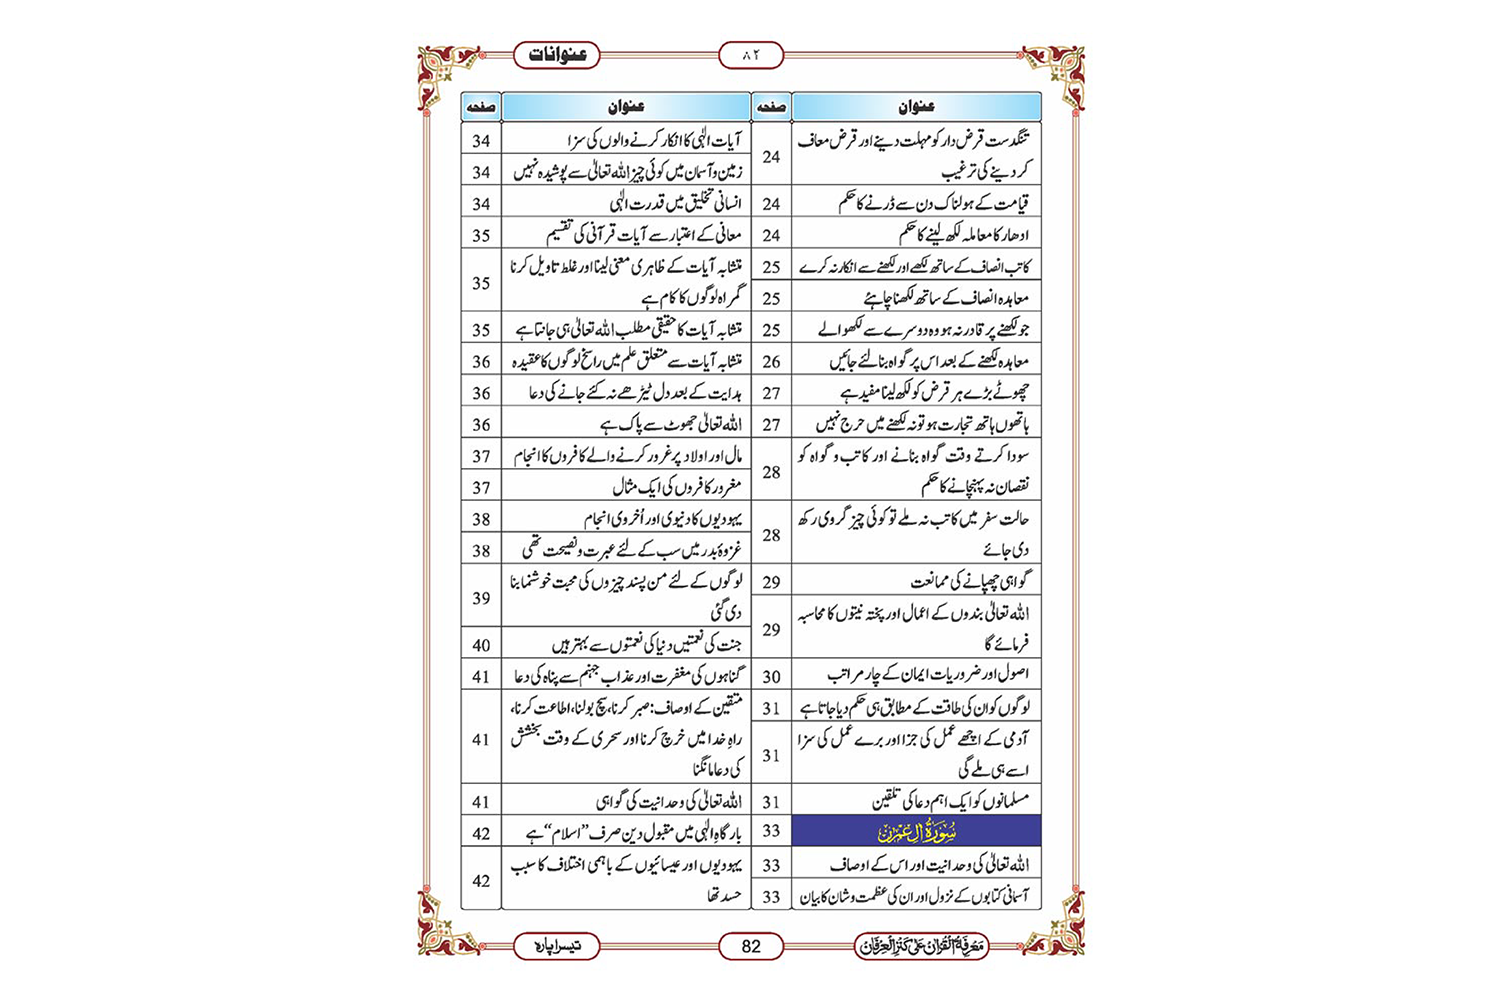 عنوانات
۸۲
عنوان
صفحہ
تنگدست قرض دار کو مہلت دینے اور قرض معاف
کر دینے کی ترغیب
24
قیامت کے ہولناک دن سے ڈرنے کا حکم
24
ادھار کا معاملہ لکھ لینے کا حکم
24
کاتب انصاف کے ساتھ لکھے اور لکھنے سے انکار نہ کرے
25
معاہدہ انصاف کے ساتھ لکھنا چاہئے
25
جو لکھنے پر قادر نہ ہو وہ دوسرے سے لکھوالے
25
معاہدہ لکھنے کے بعد اس پر گواہ بنا لئے جائیں
26
چھوٹے بڑے ہر قرض کو لکھ لینا مفید ہے
27
ہاتھوں ہاتھ تجارت ہو تو نہ لکھنے میں حرج نہیں
27
سودا کرتے وقت گواہ بنانے اور کاتب و گواہ کو
نقصان نہ پہنچانے کا حکم
28
حالت سفر میں کاتب نہ ملے تو کوئی چیز گروی رکھ
دی جائے
28
گواہی چھپانے کی ممانعت
29
اللہ تعالیٰ بندوں کے اعمال اور پختہ نیتوں کا محاسبہ
فرمائے گا
29
اصول اور ضروریات ایمان کے چار مراتب
30
لوگوں کو ان کی طاقت کے مطابق ہی حکم دیا جاتا ہے
31
آدمی کے اچھے عمل کی جزا اور برے عمل کی سزا
اسے ہی ملے گی
31
مسلمانوں کو ایک اہم دعا کی تلقین
31
سُوْرَةُ اٰلِ عِمْرٰن
33
اللہ تعالیٰ کی وحدانیت اور اس کے اوصاف
33
آسمانی کتابوں کے نزول اور ان کی عظمت و شان کا بیان
33
عنوان
صفحہ
آیات الٰہی کا انکار کرنے والوں کی سزا
34
زمین و آسمان میں کوئی چیز اللہ تعالیٰ سے پوشیدہ نہیں
34
انسانی تخلیق میں قدرت الٰہی
34
معانی کے اعتبار سے آیات قرآنی کی تقسیم
35
متشابہ آیات کے ظاہری معنی لینا اور غلط تاویل کرنا
گمراہ لوگوں کا کام ہے
35
متشابہ آیات کا حقیقی مطلب اللہ تعالیٰ ہی جانتا ہے
35
متشابہ آیات سے متعلق علم میں راسخ لوگوں کا عقیدہ
36
ہدایت کے بعد دل ٹیڑھے نہ کئے جانے کی دعا
36
اللہ تعالیٰ جھوٹ سے پاک ہے
36
مال اور اولاد پر غرور کرنے والے کافروں کا انجام
37
مغرور کافروں کی ایک مثال
37
یہودیوں کا دنیوی اور اُخروی انجام
38
غزوۂ بدر میں سب کے لئے عبرت و نصیحت تھی
38
لوگوں کے لئے من پسند چیزوں کی محبت خوشنما بنا
دی گئی
39
جنت کی نعمتیں دنیا کی نعمتوں سے بہتر ہیں
40
گناہوں کی مغفرت اور عذاب جہنم سے پناہ کی دعا
41
متقین کے اوصاف: صبر کرنا، سچ بولنا، اطاعت کرنا،
راہِ خدا میں خرچ کرنا اور سحری کے وقت بخشش
کی دعا مانگنا
41
اللہ تعالیٰ کی وحدانیت کی گواہی
41
بارگاہِ الٰہی میں مقبول دین صرف “اسلام” ہے
42
یہودیوں اور عیسائیوں کے باہمی اختلاف کا سبب
حسد تھا
42
مَعْرِفَةُ الْقُرْاٰن عَلٰی كَنْزِ الْعِرْفَان
82
تیسرا پارہ